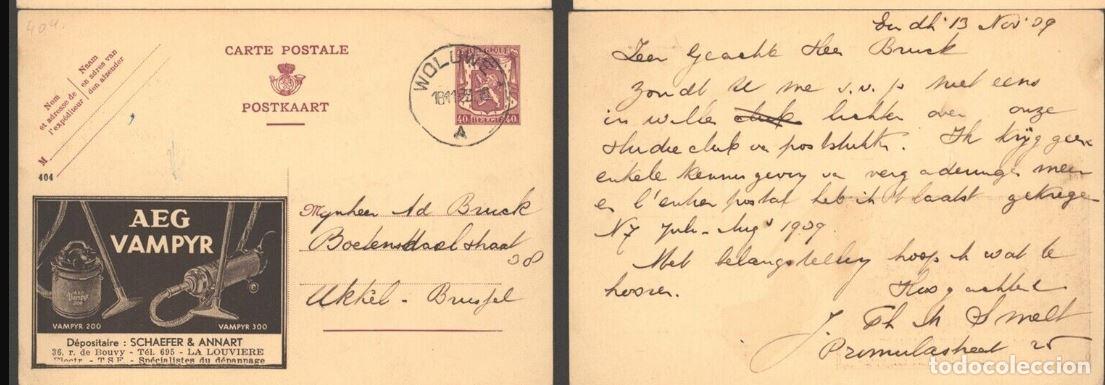 404.
CARTE POSTALE
POSTKAART
Nom
et adresse de
l'expéditeur
Naam
en adres van
den afzender
N
404
BELGIQUE
40 BELGIE 40
WOLUWE
A
AEG
VAMPYR
VAMPYR 200
VAMPYR 300
Dépositaire : SCHAEFER & ANNART
36, r. de Bouvy - Tél. 695 - LA LOUVIERE
Electr. - T.S.F. - Spécialistes du dépannage
Mynheer Ad Bruck
38
Ukkel - Brussel
13 Nov '39
Zeer Geachte Heer Bruck
Zoudt U me s.v.p. niet eens
in willen lichten over onze
studie club van poststukken. Ik krijg geen
enkele kennisgeving van vergaderingen meer
en l'entier postal heb ik 't laatst gekregen
N7 Juli - Aug 1939.
Met belangstelling hoop ik wat te
hooren.
Hoogachtend
J. Th Smelt
Primulastraat 25
todocoleccion